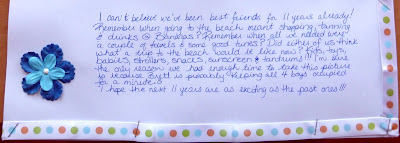 I can't believe we've been best friends for 11 years already!
Remember when going to the beach meant shopping, tanning
& drinks @ Blandpas? Remember when all we needed were
a couple of towels & some good tunes? Did either of us think
what a trip to the beach would be like now? Kids, toys,
babies, strollers, snacks, sunscreen & tantrums!! I'm sure
the only reason we had enough time to take this picture
is because Brett is probably keeping all 4 boys occupied
for a minute.☺
I hope the next 11 years are as exciting as the past ones!!!